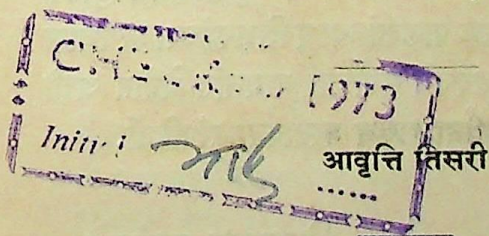 CHECKED 1973
Initial
आवृत्ति तिसरी
......